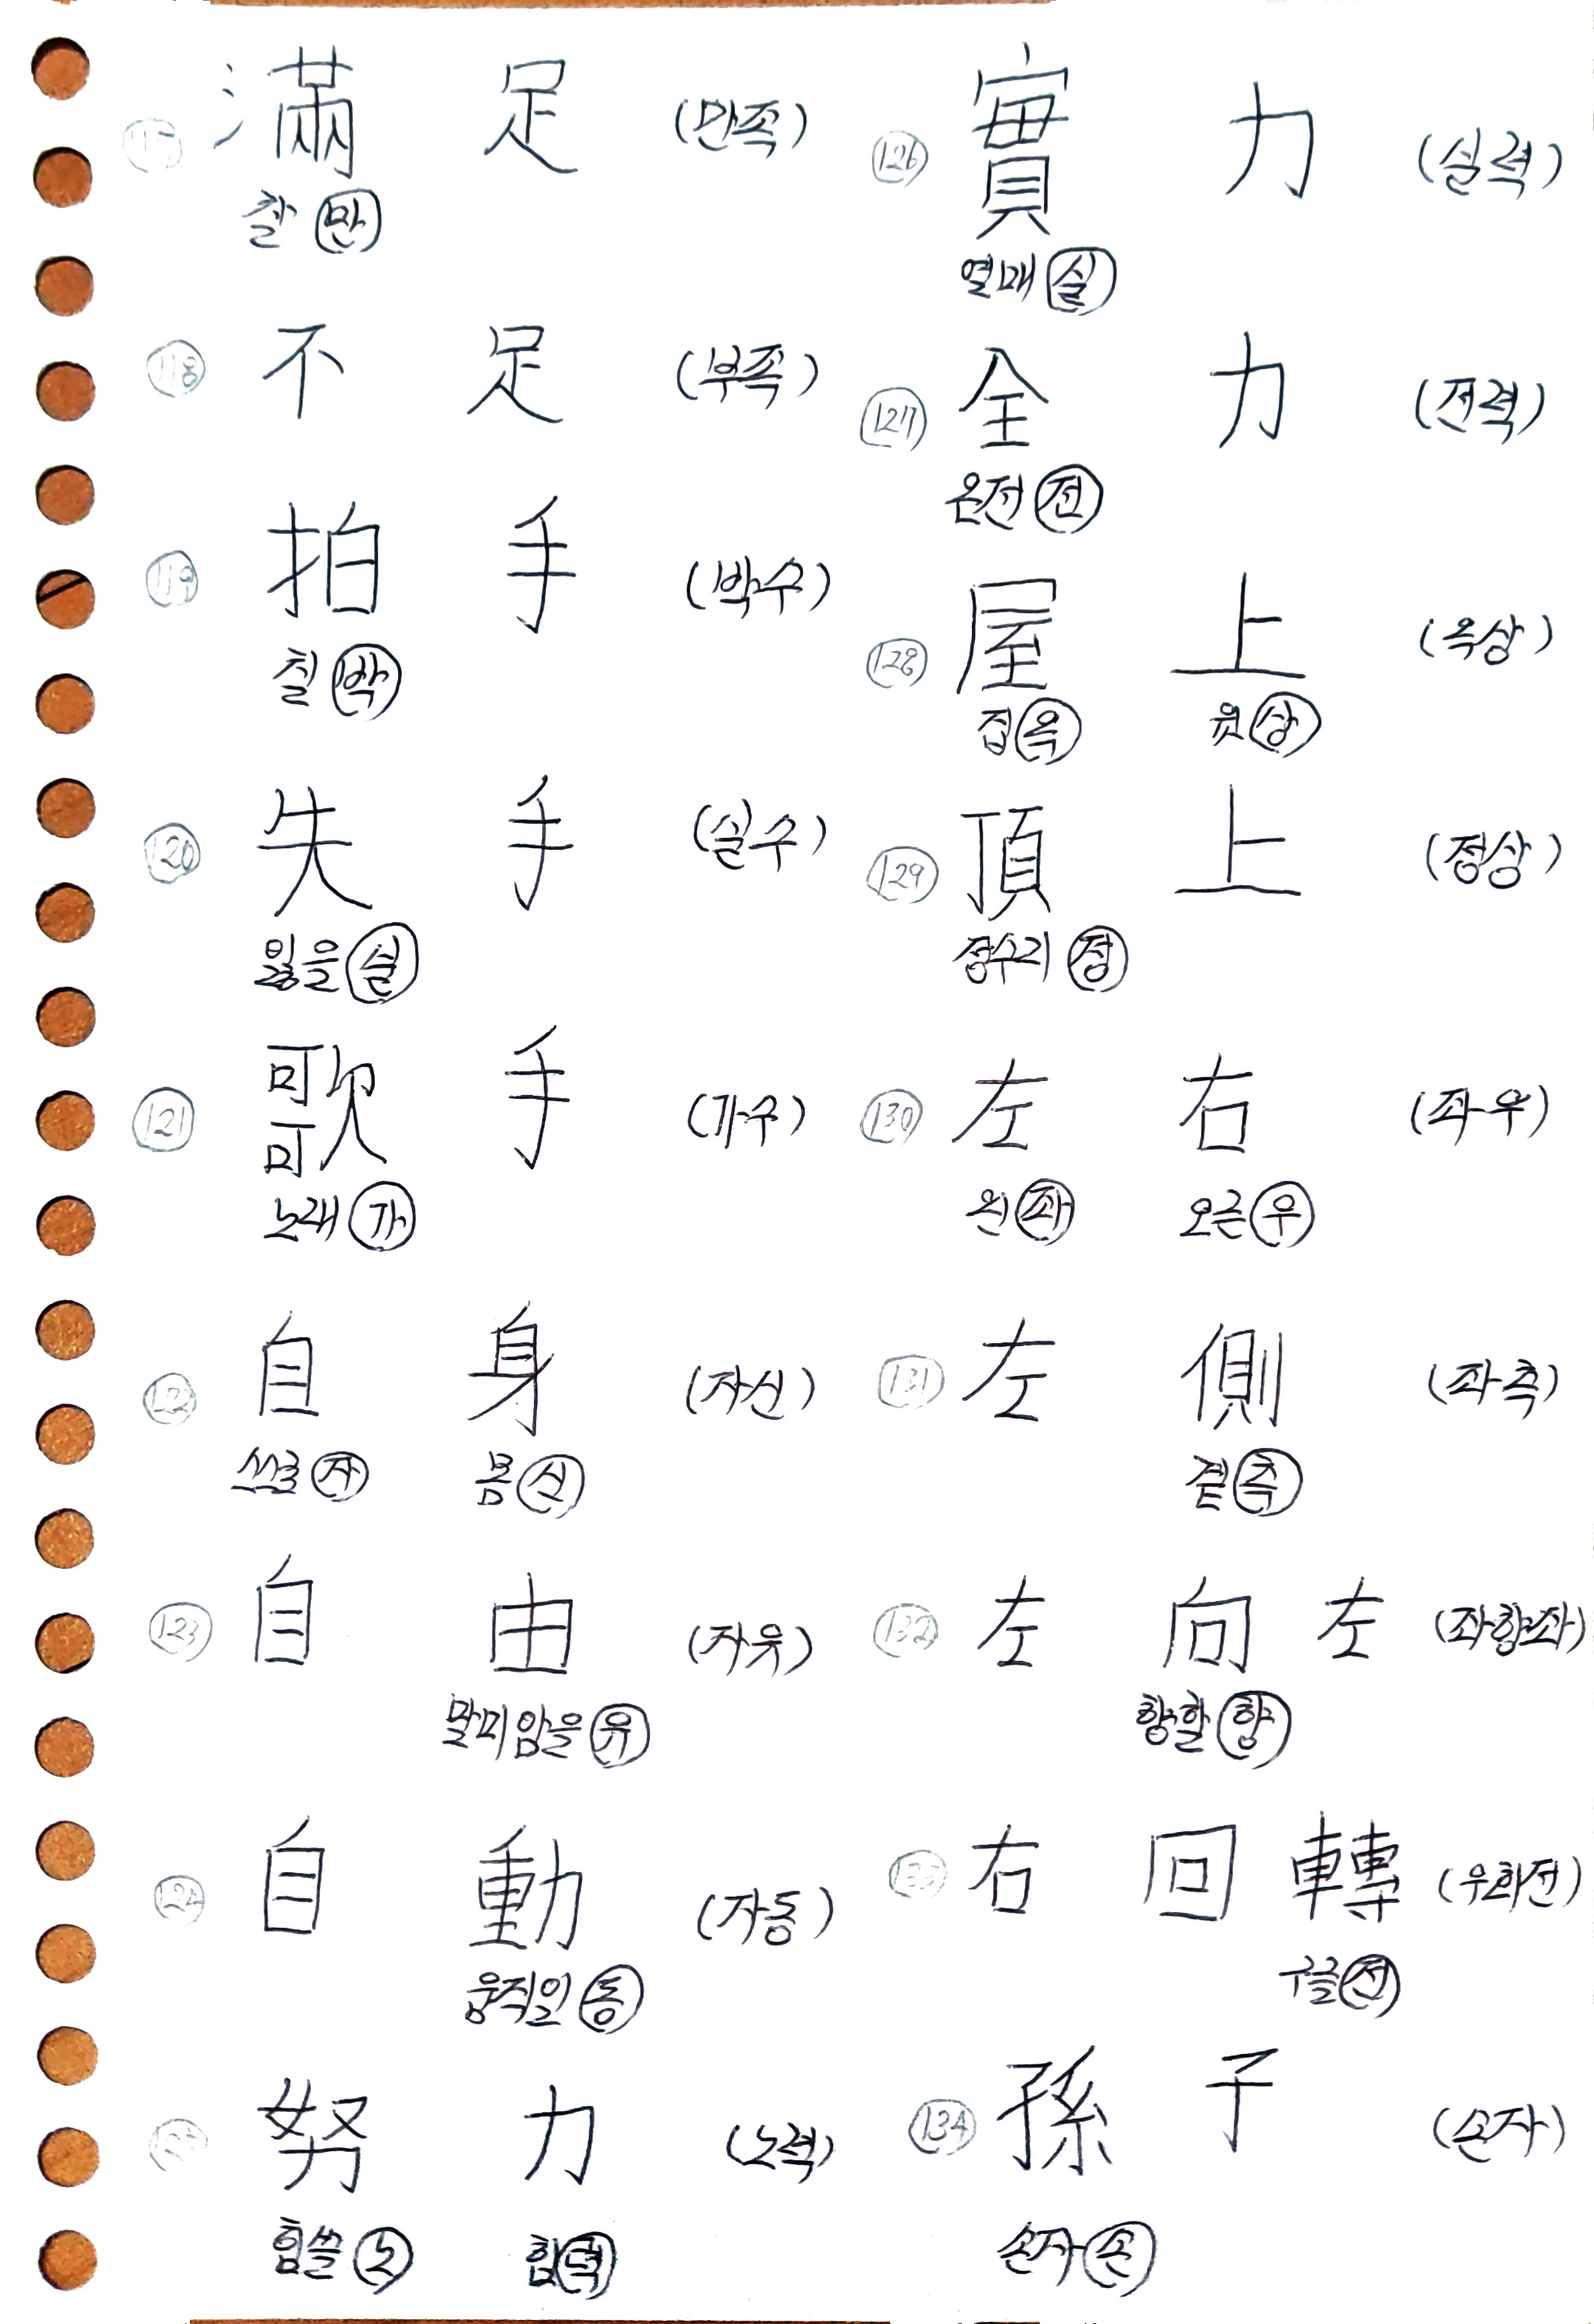 117 滿 足 (만족)
찰 만
118 不 足 (부족)
119 拍 手 (박수)
칠 박
120 失 手 (실수)
잃을 실
121 歌 手 (가수)
노래 가
122 自 身 (자신)
스스로 자 몸 신
123 自 由 (자유)
말미암을 유
124 自 動 (자동)
움직일 동
125 努 力 (노력)
힘쓸 노 힘 력
126 實 力 (실력)
열매 실
127 全 力 (전력)
온전 전
128 屋 上 (옥상)
집 옥 윗 상
129 頂 上 (정상)
정수리 정
130 左 右 (좌우)
왼 좌 오른 우
131 左 側 (좌측)
곁 측
132 左 向 左 (좌향좌)
향할 향
133 右 回 轉 (우회전)
구를 전
134 孫 子 (손자)
손자 손